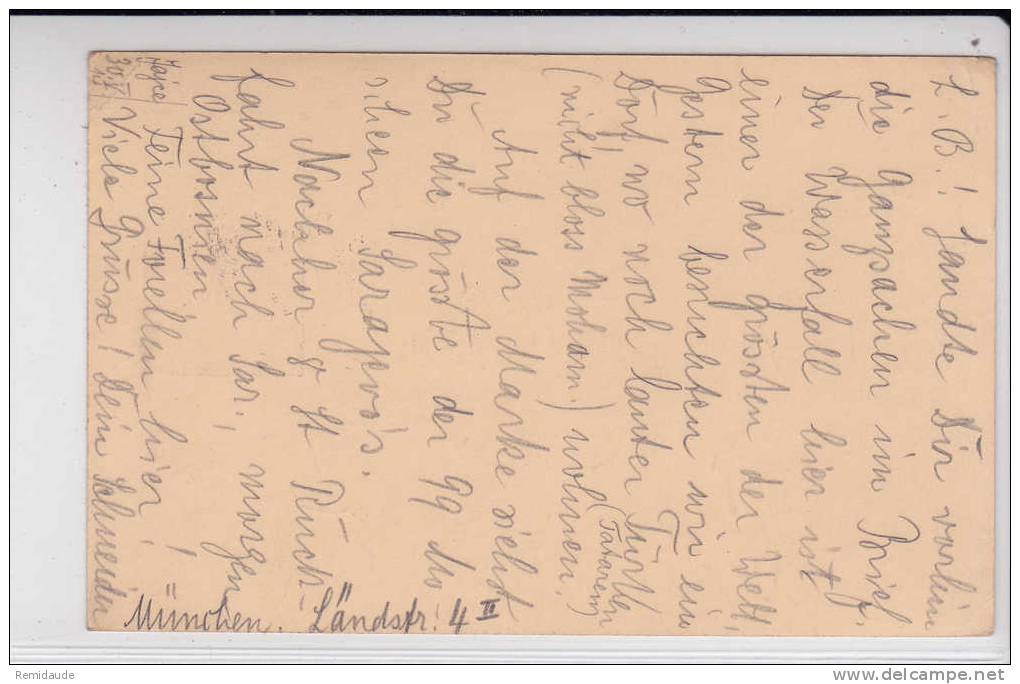 L. B.! Sandte Dir vorhin
die Ganzsachen im Brief.
Der Wasserfall hier ist
einer der grössten der Welt,
Gestern besuchten wir ein
Dorf, wo noch lauter Türken
(Tataren)
(nicht bloss Moham.) wohnen.
Auf der Marke siehst
Du die grösste der 99 Mo
scheen Sarajevo's.
Nachher 8 St Rück-
fahrt nach Sar., morgen
Ostbosnien
Jajce / Feine Forellen hier!
30/V Viele Grüsse! Dein Schneider
München. Ländstr: 4 II
Remidaude
www.delcampe.net